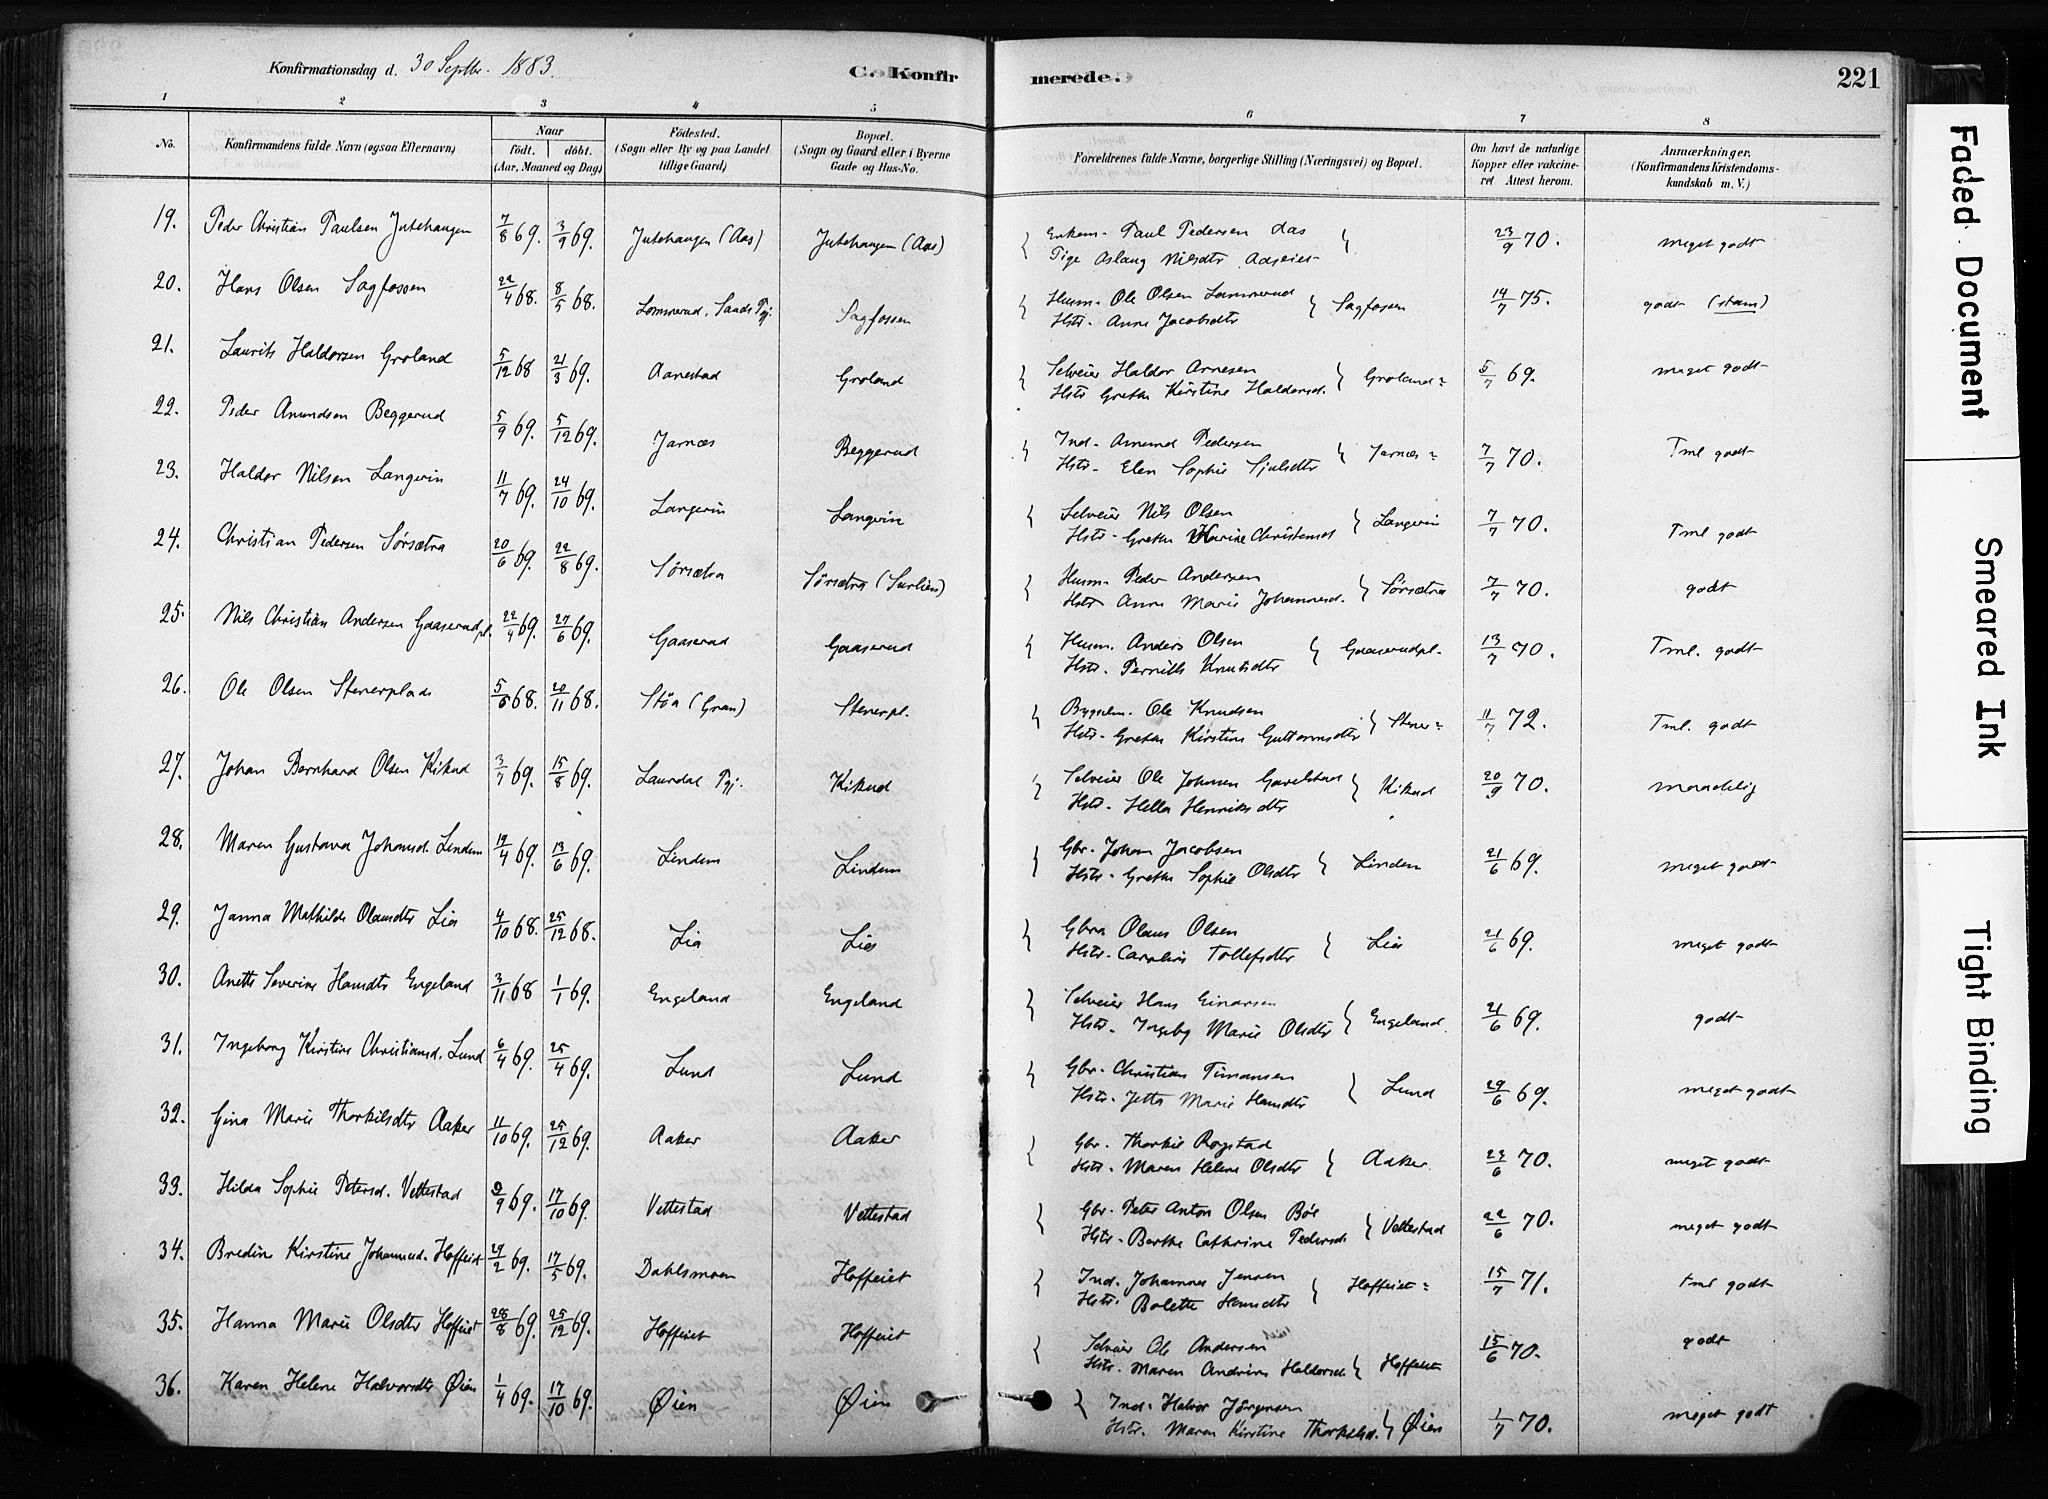 Konfirmationsdag d. 30 Septbr. 1883.
C. Konfirmerede.
221
1 2 3 4 5 6 7 8
No.
Konfirmandens fulde Navn (ogsaa Efternavn)
Naar
födt. döbt.
(Aar, Maaned og Dag)
Födested.
(Sogn eller By og paa Landet tillige Gaard)
Bopæl.
(Sogn og Gaard eller i Byerne Gade og Hus-No.
Forældrenes fulde Navne, borgerlige Stilling (Næringsvei) og Bopæl.
Om havt de naturlige Kopper eller vakcineret Attest herom.
Anmærkninger.
(Konfirmandens Kristendomskundskab m. V.)
19. Peder Christian Paulsen Jutehaugen 7/8 69. 3/9 69. Jutehaugen (Aas) Jutehaugen (Aas) Enkem. Paul Pedersen Aas 23/9 70. meget godt
Pige Aslaug Nilsdtr Aaseiet
20. Hans Olsen Sagfossen 22/4 68. 8/5 68. Lommerud, Sands Pgj. Sagfossen Husm. Ole Olsen Lommerud Sagfossen 14/7 75. godt (stam)
Hstr. Anne Jacobsdtr
21. Laurits Haldorsen Groland 5/12 68 21/3 69. Aanestad Groland Selveier Haldor Arnesen Groland 5/7 69. meget godt
Hstr Grethe Kirstine Haldorsd.
22. Peder Amundsen Beggerud 5/9 69. 5/12 69. Jarnæs Beggerud Ind. Amund Pedersen Jarnæs 7/7 70. Tml godt
Hstr. Elen Sophie Sjulsdtr
23. Haldor Nilsen Langerin 11/7 69. 24/10 69. Langerin Langerin Selveier Nils Olsen Langerin 7/7 70. Tml godt
Hstr. Grethe Karine Christensd
24. Christian Pedersen Sørsætra 20/6 69. 22/8 69. Sørsætra Sørsætra (Surlien) Husm. Peder Andersen Sørsætra 7/7 70. godt
Hstr Anne Marie Johannesd.
25. Nils Christian Andersen Gaaserudpl. 22/4 69. 27/6 69. Gaaserud Gaaserud Husm. Anders Olsen Gaaserudpl. 13/7 70. Tml. godt
Hstr. Pernille Knutsdtr
26. Ole Olsen Stenerplads 5/6 68. 20/11 68. Støa (Gran) Stenerpl. Bygselm. Ole Knudsen Stener 11/7 72. Tml. godt
Hstr. Grethe Kirstine Guttormsdtr
27. Johan Bernhard Olsen Kikud 3/7 69. 15/8 69. Laurdal Pgj. Kikud Selveier Ole Johnsen Gavelstad Kikud 20/9 70. maadelig
Hstr. Hella Henriksdtr
28. Maren Gustava Johansd. Lindem 19/4 69. 13/6 69. Lindem Lindem Gbr. Johan Jacobsen Lindem 21/6 69. meget godt
Hstr. Grethe Sophie Olsdtr
29. Janna Mathilde Olausdtr Lia 4/10 68. 25/12 68. Lia Lia Gbr. Olaus Olsen Lia 21/6 69. meget godt
Hstr. Caroline Tollefsdtr
30. Anette Severine Hansdtr Engeland 3/11 68 1/1 69. Engeland Engeland Selveier Hans Einarsen Engeland. 21/6 69. godt
Hstr. Ingebg Marie Olsdtr
31. Ingeborg Kirstine Christiansd. Lund 6/4 69. 25/4 69. Lund Lund Gbr. Christian Timansen Lund 29/6 69. meget godt
Hstr. Jetta Marie Hansdtr
32. Gina Marie Thorkilsdtr Aaker 11/10 69. 25/12 69. Aaker Aaker Gbr. Thorkil Rogstad Aaker 23/6 70. meget godt
Hstr. Maren Helene Olsdtr
33. Hilda Sophie Petersd. Vettestad 9/9 69. 17/10 69. Vettestad Vettestad Gbr. Peter Anton Olsen Bøe Vettestad 22/6 70. meget godt
Hstr. Berthe Cathrine Pedersd.
34. Bredine Kirstine Johannesd. Hoffeiet 29/2 69. 17/5 69. Dahlsmoen Hoffeiet Ind. Johannes Jensen Hoffeiet 15/7 71. tml godt
Hstr. Bolette Hansdtr
35. Hanna Marie Olsdtr Hoffeiet 28/8 69. 25/12 69. Hoffeiet Hoffeiet Selveier Ole Andersen Hoffeiet 15/6 70. godt
Hstr. Maren Andrine Haldorsd.
36. Karen Helene Halvorsdtr Øien 1/4 69. 17/10 69. Øien Øien Ind. Halvor Jørgensen Øien 1/7 70. meget godt
Hstr. Maren Kirstine Thorkelsd.
Faded Document
Smeared Ink
Tight Binding